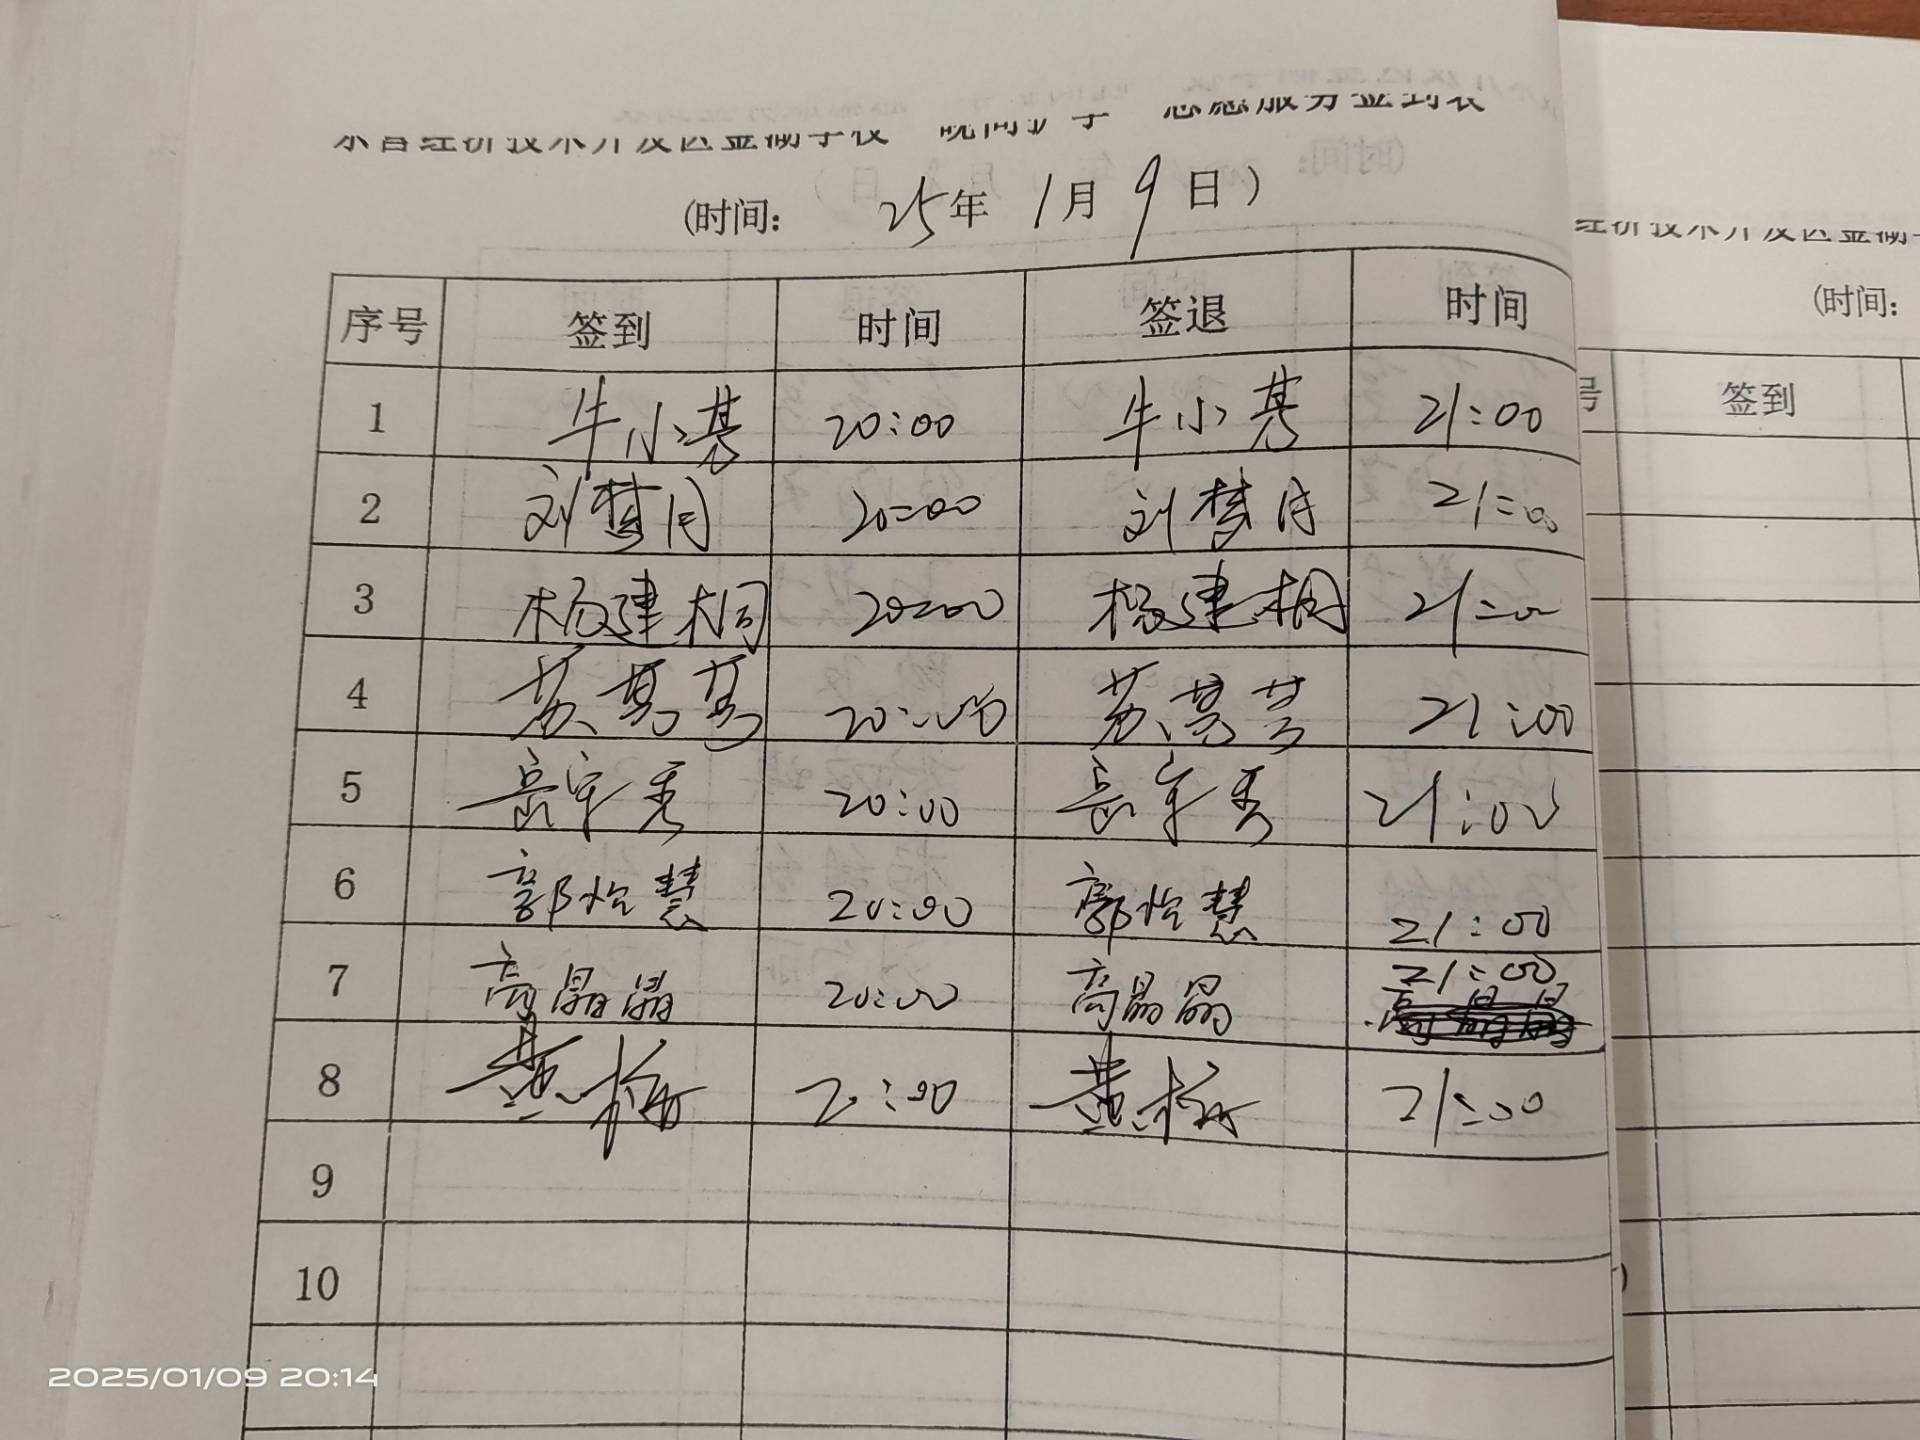 东营经济技术开发区金湖学校 晚间护学 志愿服务签到表
(时间: 25年 1月 9日)
序号 签到 时间 签退 时间
1 牛小 20:00 牛小 21:00
2 刘梦月 20:00 刘梦月 21:00
3 杨建桐 20:00 杨建桐 21:00
4 苏 20:00 苏 21:00
5 秀 20:00 秀 21:00
6 郭怡慧 20:00 郭怡慧 21:00
7 高晶晶 20:00 高晶晶 21:00
8 黄梅 20:00 黄梅 21:00
9
10
经济技术开发区金湖学
(时间:
号 签到
2025/01/09 20:14